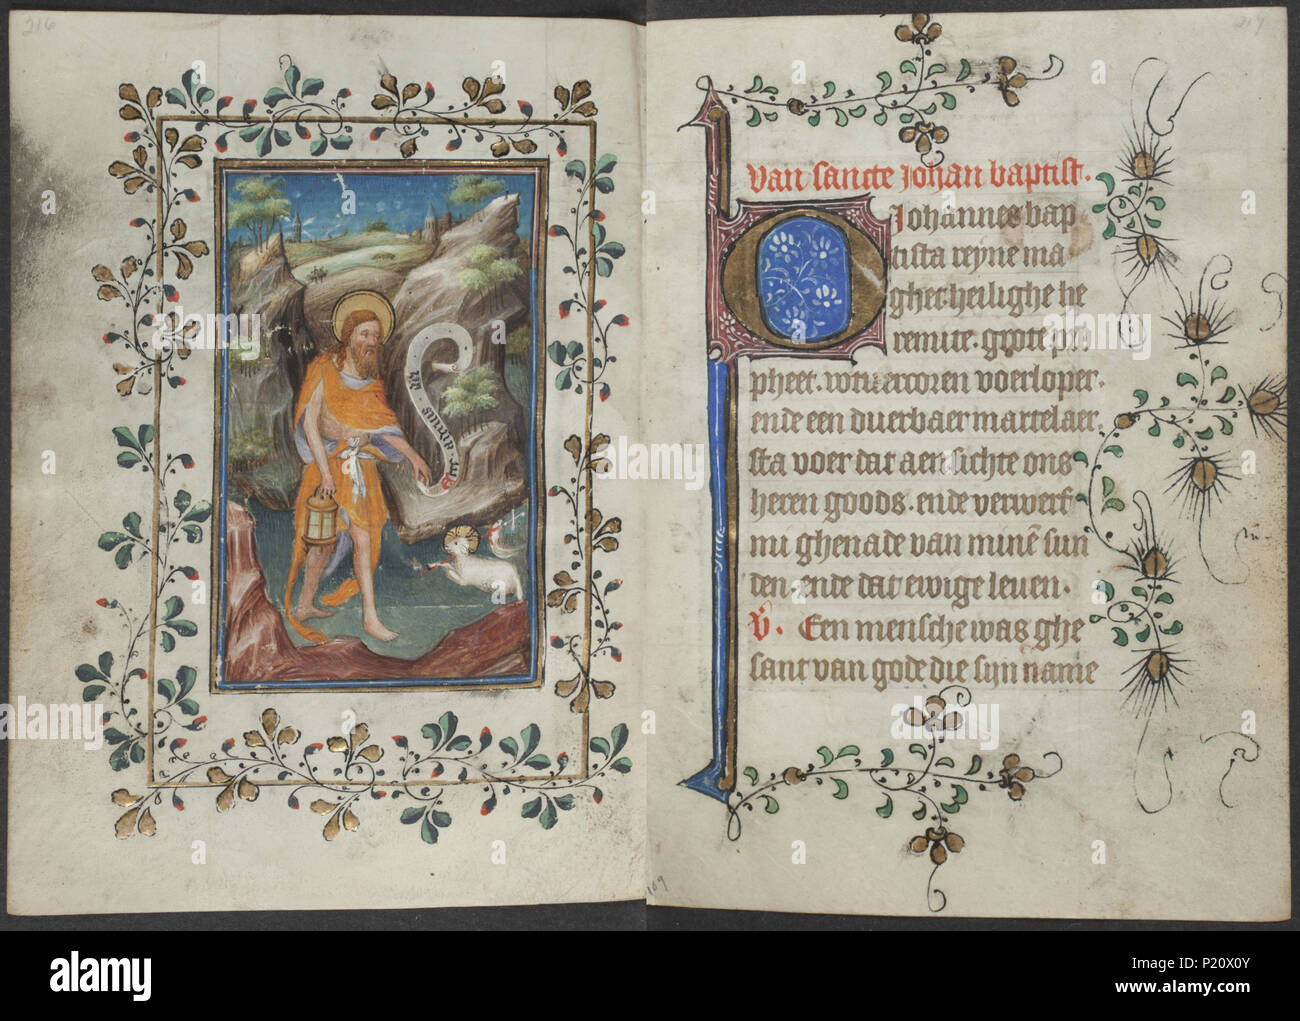 216
217
van sancte Johan baptist.
O Johannes bap
tista reyne ma
ghet heilighe he
remite. groote pro
pheet. wtuercoren voerloper.
ende een duerbaer martelaer.
sta voer dat aensichte ons
heren goods. ende verwerf
mi ghenade van minē sun
den. ende dat ewige leuen.
V̇. Een mensche was ghe
sant van gode die sijn name
109
alamy
a
alamy stock photo
P20X0Y
www.alamy.com